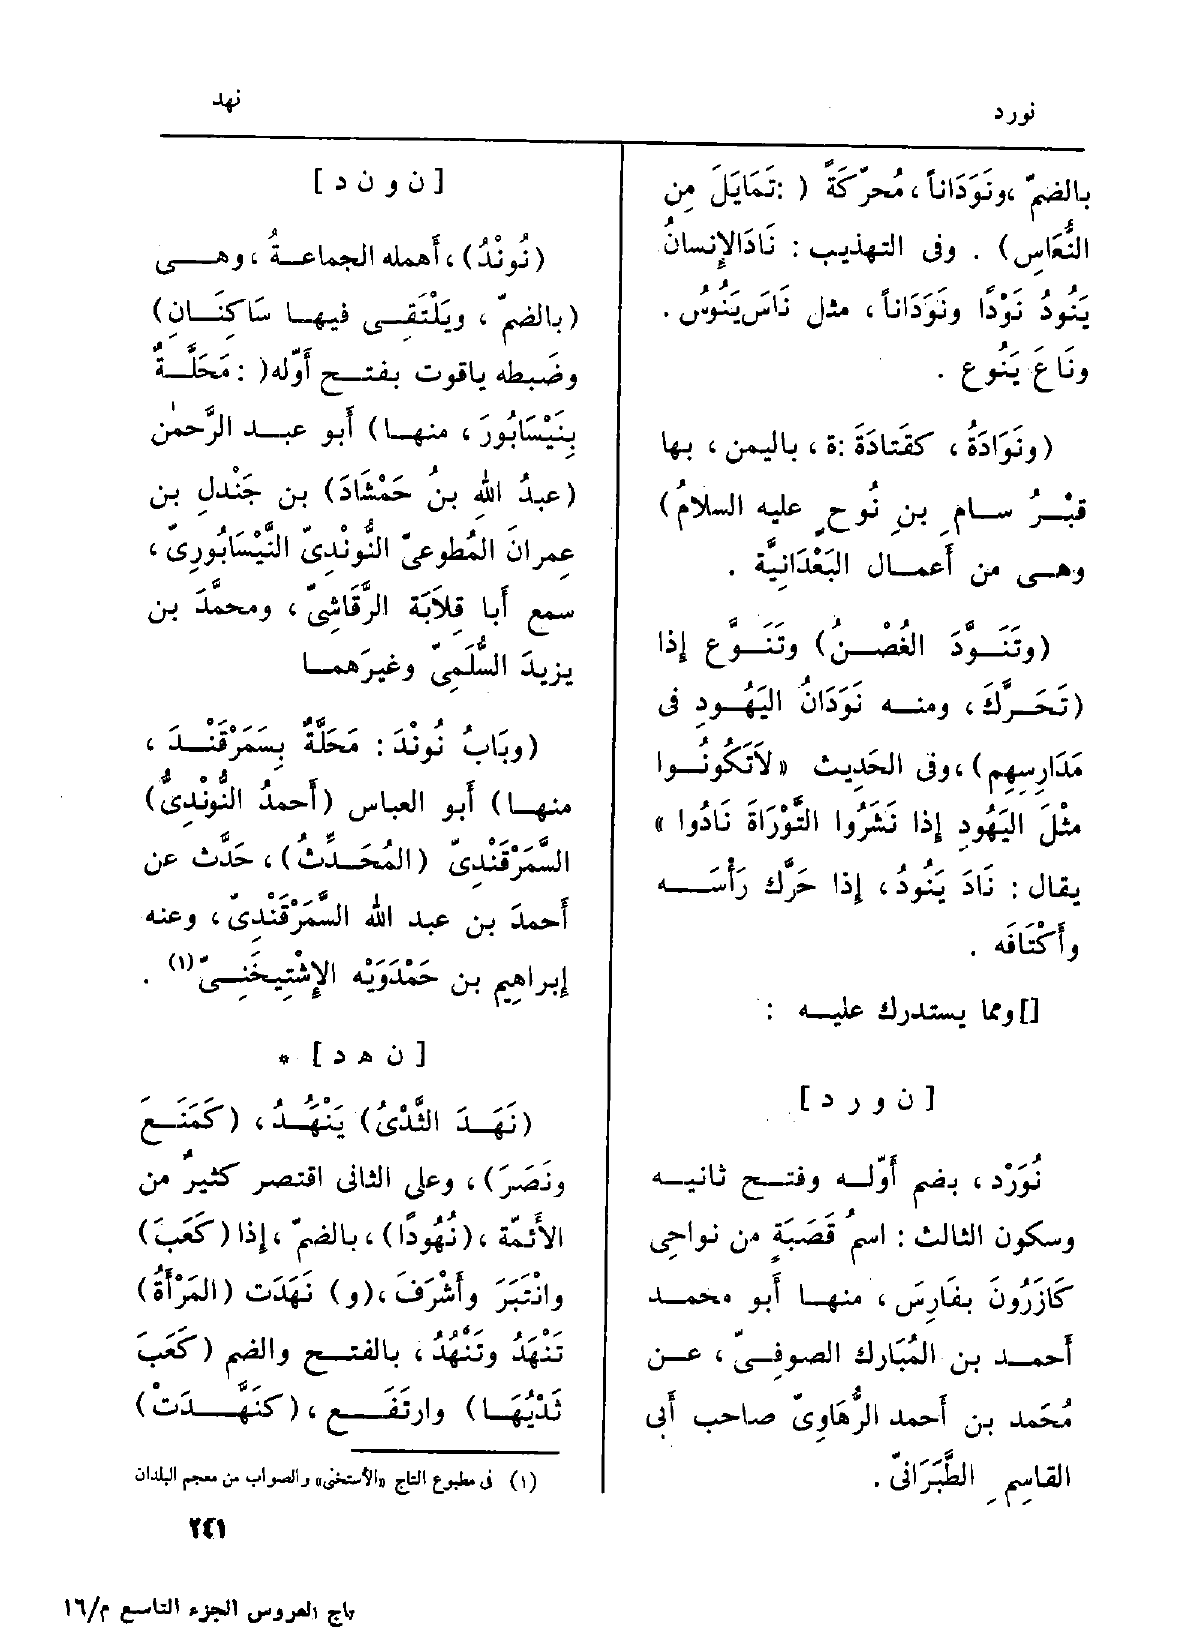 نورد
نهد
بالضمّ ، ونَوَدَاناً ، مُحرّكَةً ( : تَمَايَلَ مِن
النُّعَاسِ ) . وفى التهذيب : نَادَ الإِنسانُ
يَنُودُ نَوْدًا ونَوَدَاناً ، مثل نَاسَ يَنُوسُ .
ونَاعَ يَنُوع .
( ونَوَادَةُ ، كقَتَادَةَ : ة ، باليمن ، بها
قَبْــرُ ســامِ بنِ نُوحٍ عليه السلامُ )
وهــى من أَعمــال البَعْدَانِيَّة .
( وتَنَــوَّدَ الغُصْــنُ ) وتَنَــوَّع إِذا
( تَحَــرَّكَ ، ومنــه نَوَدَانُ اليَهُــودِ فى
مَدَارِسِهِم ) ، وفى الحَديث « لاَ تَكُونُــوا
مثْلَ اليَهُودِ إِذا نَشَرُوا التَّوْرَاةَ نَادُوا »
يقال : نَادَ يَنُودُ ، إِذا حَرَّك رَأْسَــــه
وأَكْتَافَه .
[] ومما يستدرك عليــه :
[ ن و ر د ]
نُوَرْد ، بضم أَوّلــه وفتــح ثانيــه
وسكون الثالث : اسمُ قَصَبَةٍ من نواحِى
كَازَرُونَ بفَارِسَ ، منهــا أَبو محمــد
أَحمــد بن المُبَارك الصوفــىّ ، عــن
مُحَمد بن أَحمد الرُّهَاوِىّ صاحب أَبى
القاسِمِ الطَّبَرَانىّ .
[ ن و ن د ]
( نُونْدُ ) ، أَهمله الجماعــةُ ، وهــــى
( بالضمّ ، ويَلْتَقِــى فيهــا سَاكِنَــانِ )
وضَبطه ياقوت بفتــح أَوّله( : مَحَلَّــةٌ
بِنَيْسَابُورَ ، منهــا ) أَبو عبــد الرَّحمٰن
( عبدُ اللهِ بنُ حَمْشَادَ ) بن جَنْدلِ بن
عِمرانَ المُطوعىّ النُّونْدِىّ النَّيْسَابُورِىّ ،
سمع أَبا قِلاَبَة الرَّقَاشِىّ ، ومحمَّدَ بن
يزيدَ السُّلَمِىّ وغيرَهمــا
( وبَابُ نُونْدَ : مَحَلَّةٌ بِسَمَرْقَنْــدَ ،
منهــا ) أَبو العباس ( أَحمدُ النُّونْدِىُّ )
السَّمَرْقَنْدِىّ ( المُحَــدِّثُ ) ، حَدَّث عن
أَحمدَ بن عبد الله السَّمَرْقَنْدِىّ ، وعنه
إِبراهِيم بن حَمْدَوَيْه الإِشْتِيخَنِــىّ (١) .
[ ن هـ د ] *
( نَهَــدَ الثَّدْىُ ) يَنْهُــدُ ، ( كَمَنَــعَ
ونَصَرَ ) ، وعلى الثانى اقتصر كثيرٌ من
الأَئمّة ، ( نُهُودًا ) ، بالضمّ ، إِذا ( كَعَبَ )
وانْتَبَرَ وأَشْرَفَ ، ( و ) نَهَدَت ( المَرْأَةُ )
تَنْهَدُ وتَنْهُدُ ، بالفتــح والضم ( كَعَبَ
ثَدْيُهَــا ) وارتَفَــــع ، ( كنَهَّــدَتْ )
(١) فى مطبوع التاج «الأستخى» والصواب من معجم البلدان
٢٤١
تاج العروس الجزء التاسع م/١٦